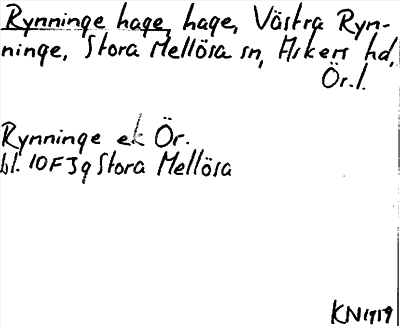 Rynninge hage, hage, Västra Ryn-
ninge, Stora Mellösa sn, Askers hd,
Ör. l.
Rynninge ek Ör.
bl. 10F3g Stora Mellösa
KN1919